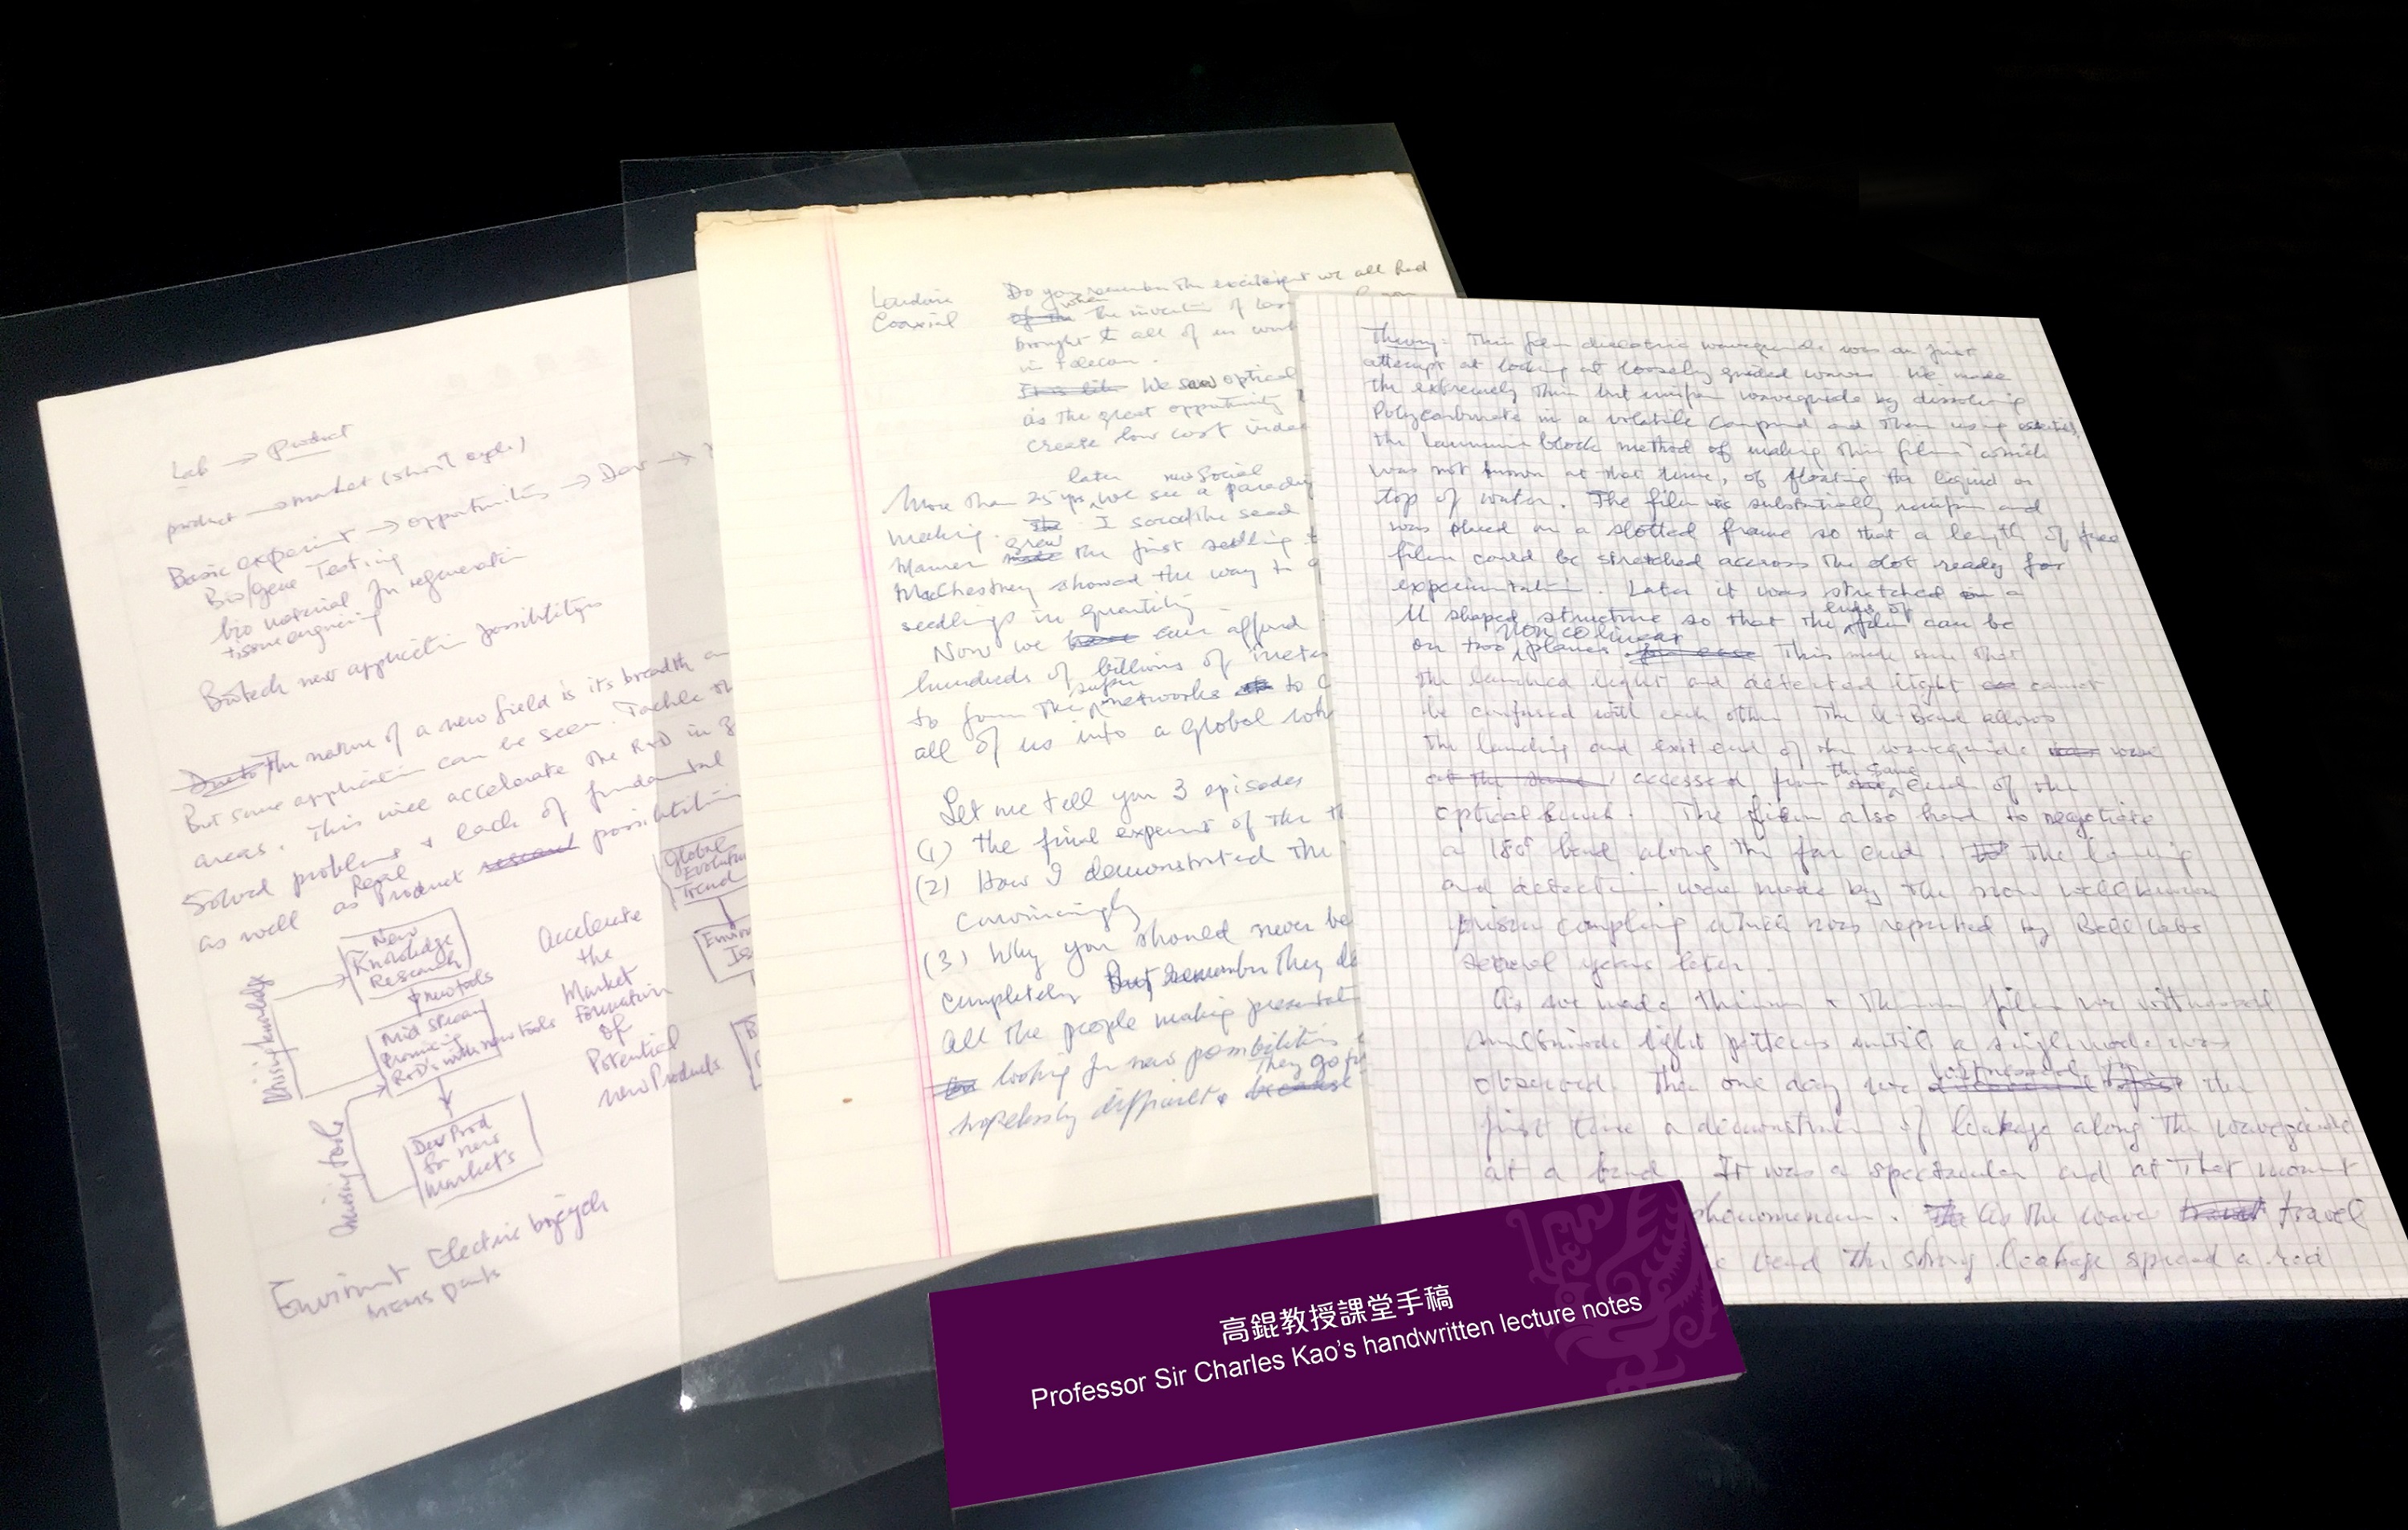 Lab → Product
product → market (short cycle)
Basic experiment → opportunities → Dev →
Bio/gene Testing
bio material for regeneration
tissue enginering
Biotech new application possibilities
Due to The nature of a new field is its breadth
But some application can be seen. Tackle
areas. This will accelerate the R&D in
Solved problems & lack of fundamental
as well as Real Product research possibilities
New
Knowledge
Research
new tools
Mid stream
Promising
R&D's with new tools
Dev Prod
for new
Markets
Missing knowledge
Missing tools
Accelerate
the
Market
formation
of
Potential
new Products
Global
Evolution
Trend
Enviro
Electric bicycle
MEMS parts
Coaxial
Do you remember the excitement we all had
of the when the invention of
brought to all of us
in telecom.
It is like We saw optical
as the great opportunity
create low cost
later new Social
More than 25 yrs, we see a
making. The I sowed the seed
Maurer made grew the first seedling
MacChesney showed the way to
seedlings in quantity
Now we have can afford
hundreds of billions of
to form the super networks to
all of us into a global
Let me tell you 3 episodes
(1) the final experiment of the
(2) How I demonstrated the
convincingly
(3) Why you should never be
completely But remember they
All the people making
looking for new possibilities
They go
hopelessly difficult & because
Theory: Thin film dielectric waveguide was our first
attempt at looking at loosely guided waves. We made
the extremely thin but uniform waveguide by dissolving
Polycarbonate in a volatile compound and then using
the block method of making thin film which
was not known at that time, of floating the liquid on
top of water. The film was substantially uniform and
was placed on a slotted frame so that a length of free
film could be stretched accross the slot ready for
experimentation. Later it was stretched on a
U shaped structure so that the ends of film can be
on two non colinear planes This made sure that
the launched light and detected light cannot
be confused with each other. The U-Bend allows
the launching and exit end of the waveguide were
at the same accessed from the same end of the
optical bench. The film also had to negotiate
a 180° bend along the far end. The launching
and detection were made by the now well known
prism coupling which was reported by Bell Labs
several years later.
As we made thinner & thinner film we witnessed
multimode light pattern until a single mode was
observed. Then one day we witnessed for the
first time a demonstration of leakage along the waveguide
at a bend. It was a spectacular and at that moment
phenomenon. As the wave travel
bend the strong leakage spread a red
高錕教授課堂手稿
Professor Sir Charles Kao's handwritten lecture notes